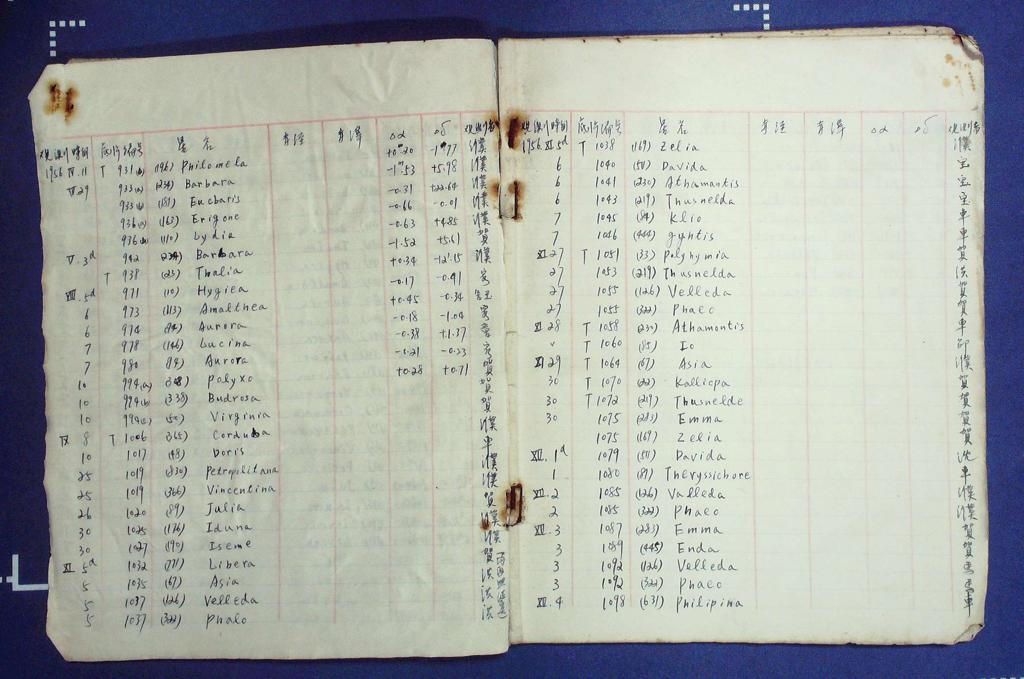 观测时间 底片编号 星名 赤经 赤纬 Δα Δδ 观测者
1956 IV.11 T 931(a) (196) Philomela +0.20 -1.77 濮
VI 29 933(a) (234) Barbara -1.53 +5.98 濮
933(b) (181) Eucharis -0.31 +22.64 濮
936(a) (163) Erigone -0.66 -0.01 濮
936(b) (110) Lydia -0.63 +4.85 濮
V. 3d 942 (234) Barbara -1.52 +5.61 贺
T 938 (23) Thalia +0.34 -12.15 濮
VIII. 5d 971 (10) Hygiea -0.17 -0.41
6 973 (113) Amalthea +0.45 -0.34
6 974 (94) Aurora -0.18 -1.04
7 978 (146) Lucina -0.38 +1.37
7 980 (94) Aurora -0.21 -0.23
10 994(a) (308) Polyxo +0.28 +0.71 贺
10 994(b) (338) Budrosa 贺
10 994(c) (50) Virginia 贺
IX 8 T 1006 (365) Corduba 濮
10 1017 (48) Doris 車
25 1019 (830) Petropolitana 濮
25 1019 (366) Vincentina 濮
26 1020 (89) Julia 贺
30 1025 (176) Iduna 濮
30 1027 (190) Iseme 濮
XI 5d 1032 (771) Libera 贺
5 1035 (67) Asia
5 1037 (126) Velleda
5 1037 (322) Phalo
观测时间 底片编号 星名 赤经 赤纬 Δα Δδ 观测者
1956 XI 5d T 1038 (169) Zelia 濮
6 1040 (511) Davida
6 1041 (230) Athamantis
6 1043 (219) Thusnelda
7 1045 (84) Klio 車
7 1046 (444) gyptis 車
XI 27 T 1051 (33) Polyhymia 贺
27 1053 (219) Thusnelda
27 1055 (126) Velleda 贺
27 1055 (322) Phaeo 贺
XI 28 T 1058 (230) Athamontis 車
T 1060 (85) Io
XI 29 T 1064 (67) Asia 濮
30 T 1070 (22) Kalliopa 賀
30 T 1072 (219) Thusnelde 賀
30 1075 (283) Emma 賀
1075 (169) Zelia 賀
XII. 1d 1079 (511) Davida 沈
1 1080 (81) Theryssichore 車
XII. 2 1085 (126) Valleda 濮
2 1085 (322) Phaeo 濮
XII. 3 1087 (283) Emma 賀
3 1089 (445) Enda 賀
3 1092 (126) Velleda
3 1092 (322) Phaeo
XII. 4 1098 (631) Philipina 車